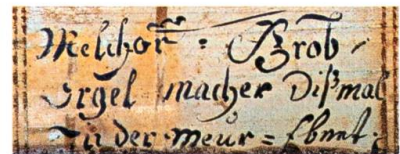 Melchor = Grob
Orgel macher Dißmal
Zu der Meür = Ebnat.